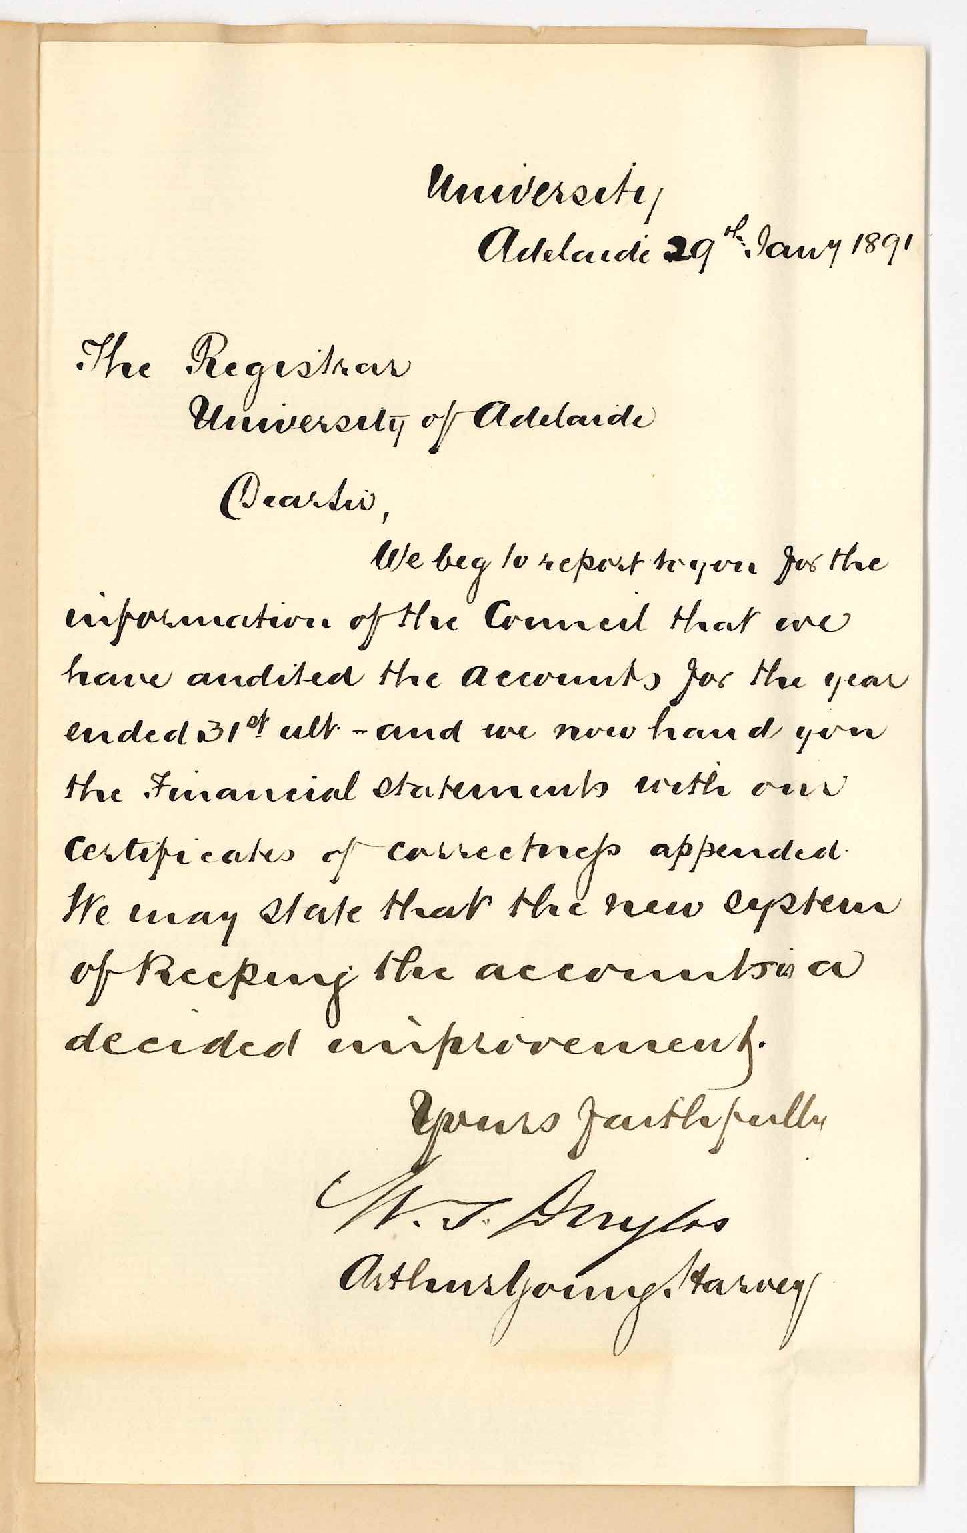 University
Adelaide 29th Jany 1891
The Registrar
University of Adelaide
Dear Sir,
We beg to report to you for the
information of the Council that we
have audited the accounts for the year
ended 31st ult - and we now hand you
the Financial statements with our
certificates of correctness appended.
We may state that the new system
of keeping the accounts is a
decided improvement.
Yours faithfully
W. J. Douglas
Arthur Young Harvey